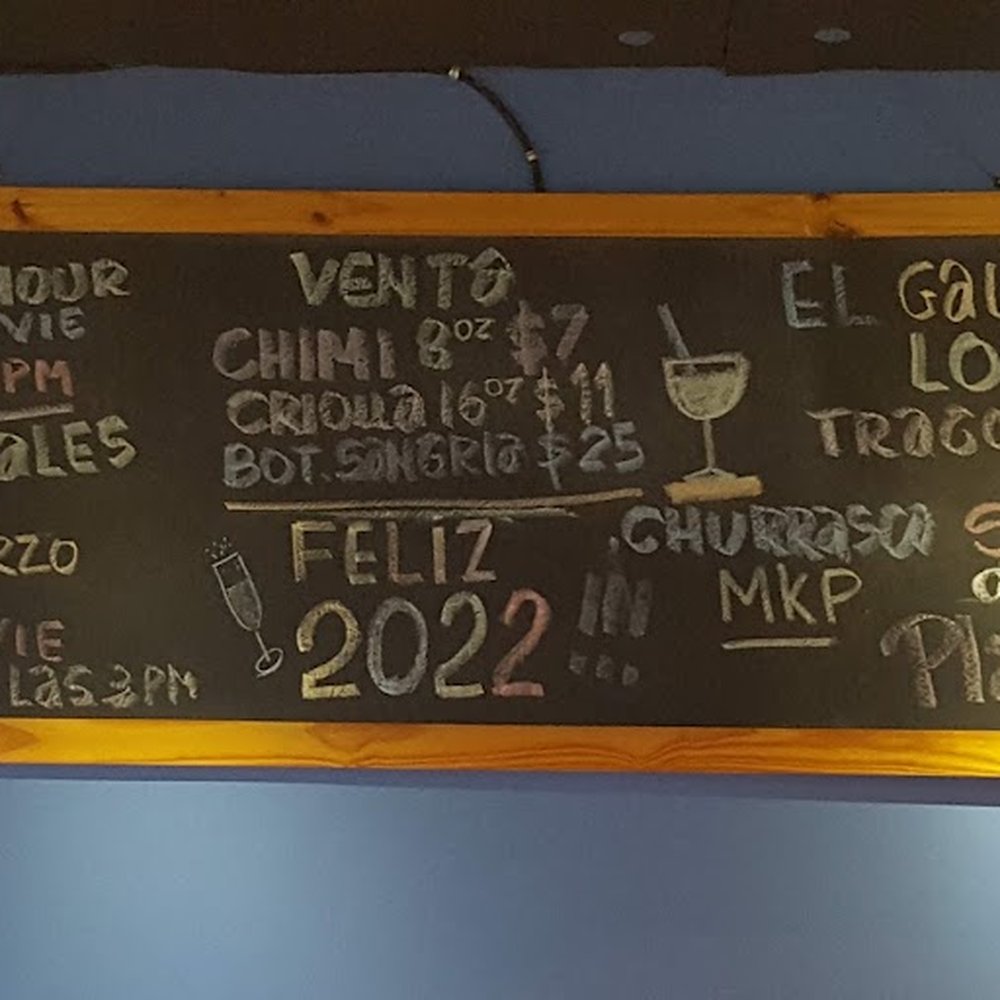 HOUR
VIE
PM
ALES
RZO
VIE
LAS 3 PM
VENTA
CHIMI 8oz $7
CRIOLLA 16oz $11
BOT. SANGRIA $25
FELIZ
2022 !!!
EL GAU
LO
TRAGO
CHURRASCA
MKP
Pla